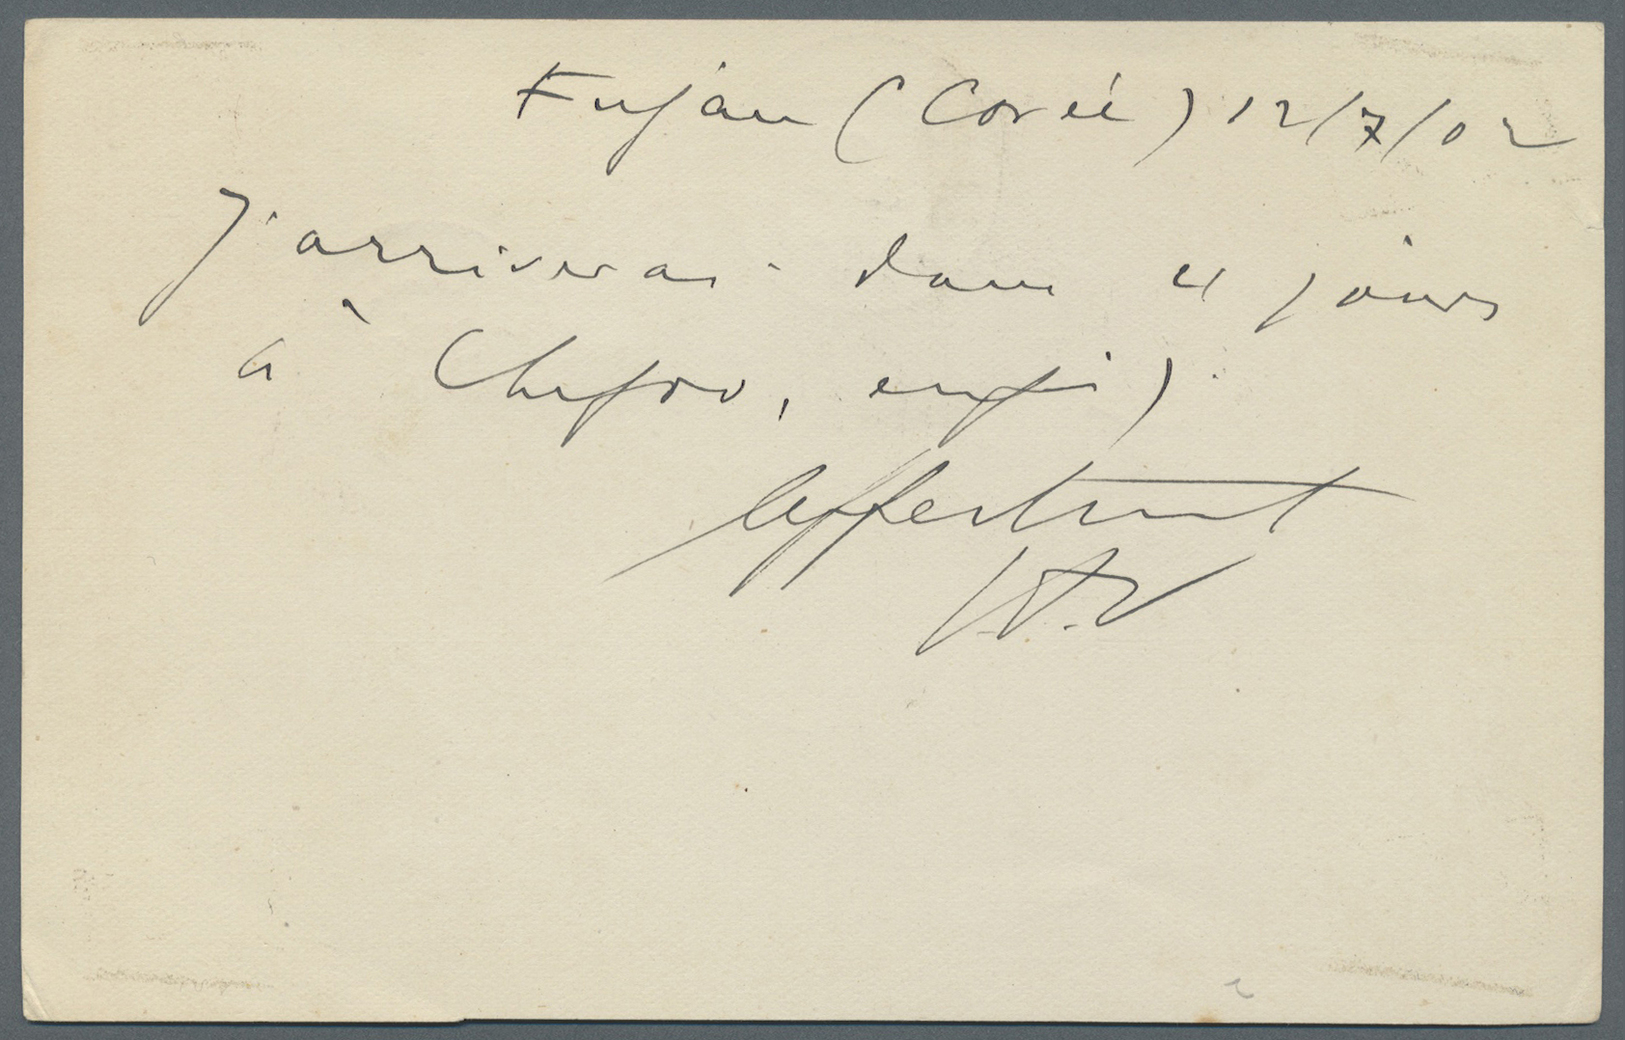 Fusan (Corée) 12/7/02
J'arriverai dans 4 jours
à Chefoo, enfin)